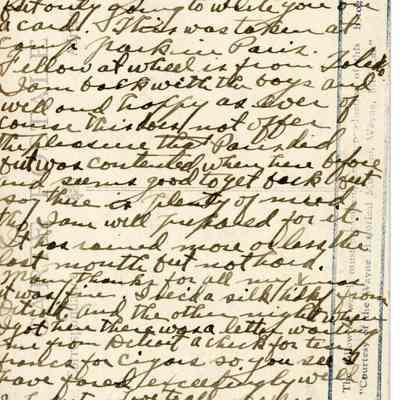 just only going to write you on
a card. This was taken at
Camp Park in Paris.
Fellow at wheel is from Toledo.
I am back with the boys and
well and happy as ever of
course this does not offer
the pleasure that Paris did
but was contented when here before
and seems good to get back but
so there is plenty of mud
tho I am well prepared for it.
It has rained more or less the
last month but not hard.
Many thanks for all my Xmas
it was fine. I rec'd a silk hdkf from
Detroit and the other night when
I got here there was a letter waiting
me from Detroit a check for ten
francs for cigars so you see I
have fared exceedingly well
"Courtesy of the Wayne Historical Museum, Wayne,